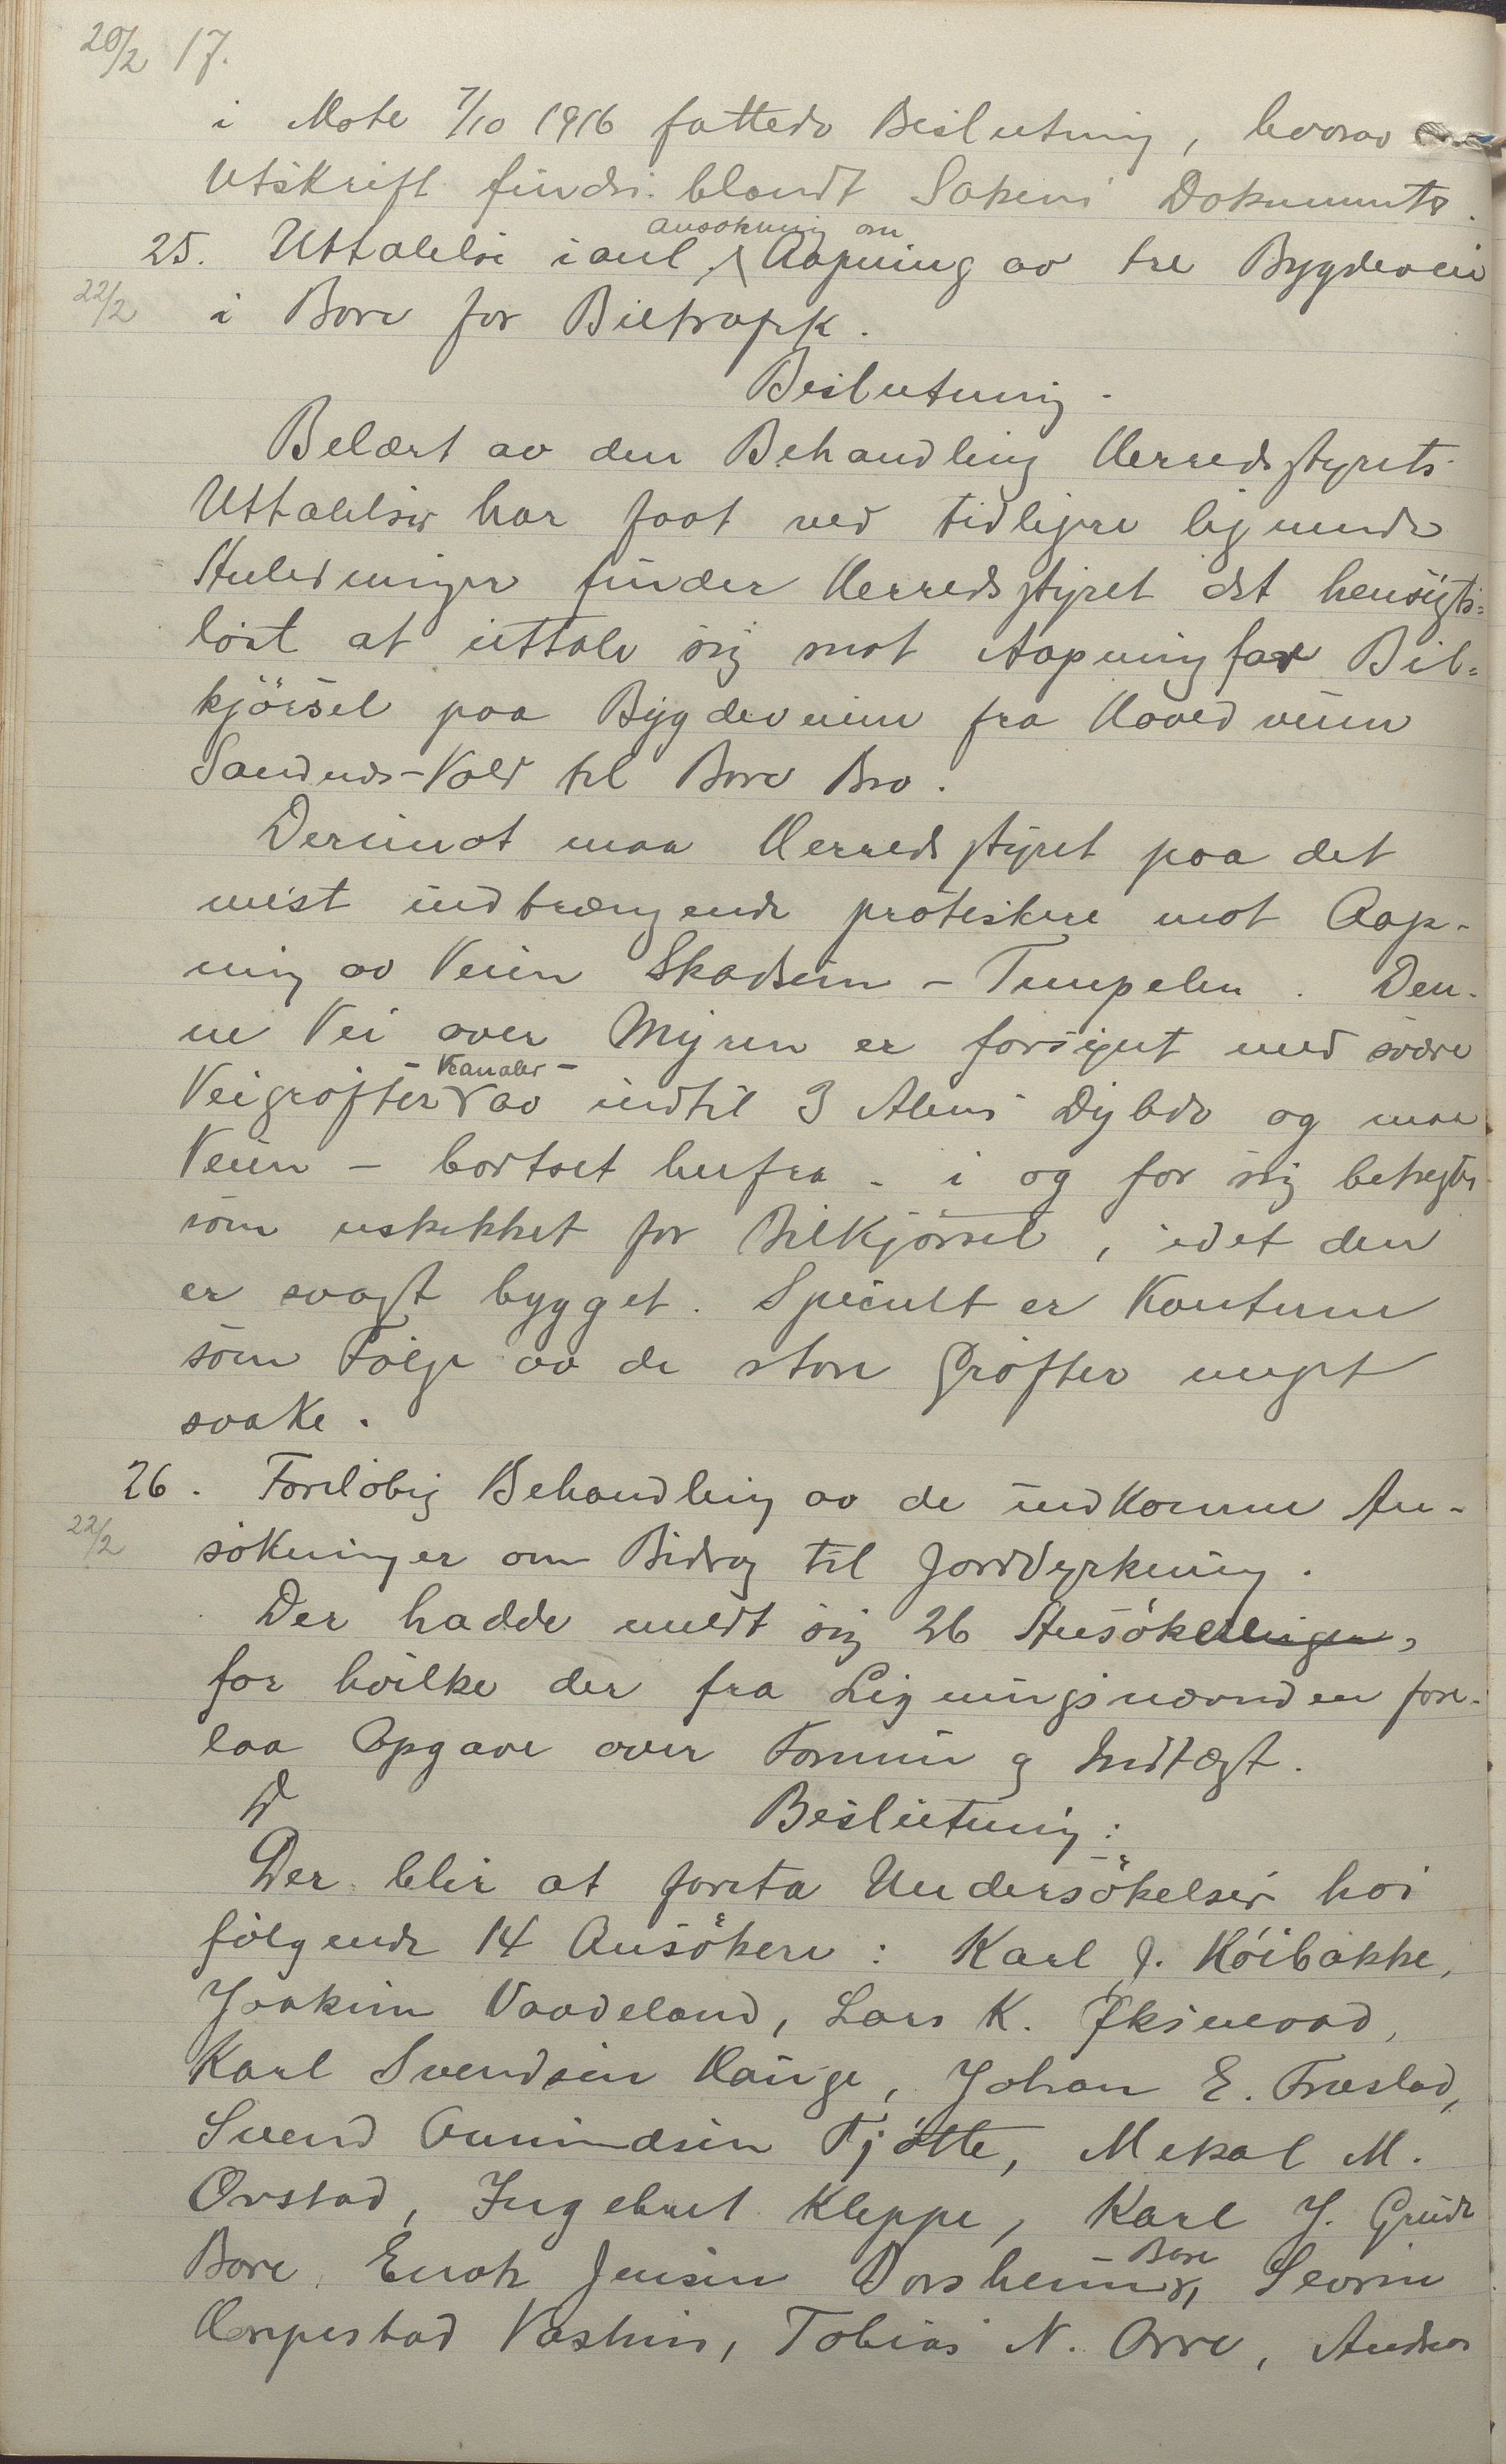 20/2 17.
i Møte 7/10 1916 fattede Beslutning, hvorav
Utskrift findes blandt Sakens Dokumenter.
ansøkning om
25. Uttalelse i anl. Aapning av tre Bygdeveie
22/2 i Bore for Biltrafik.
Beslutning.
Belært av den Behandling Herredsstyrets
Uttalelser har faat ved tidligere lignende
Anledninger finder Herredsstyret det hensigts=
løst at uttale sig mot Aapning for Bil=
kjørsel paa Bygdeveien fra Hovedveien
Sandnes-Vold til Bore Bro.
Derimot maa Herredsstyret paa det
mest indtrængende protestere mot Aap-
ning av Veien Skadsem - Tumpelen. Den-
ne Vei over Myren er forsynt med svære
- Kanaler -
Veigrøfter av indtil 3 Alens Dybde og maa
Veien - bortset herfra - i og for sig betragtes
som uskikket for Bilkjørsel, idet den
er svagt bygget. Specielt er Kantene
som Følge av de store Grøfter meget
svake.
26. Foreløbig Behandling av de indkomne An-
22/2 søkninger om Bidrag til Jorddyrkning.
Der hadde meldt sig 26 Ansøkere,
for hvilke der fra Ligningsnævnden fore-
laa Opgave over Formue og Indtægt.
D
Beslutning:
Der blir at foreta Undersøkelser hos
følgende 14 Ansøkere: Karl J. Høibakke,
Joakim Vaadeland, Lars K. Øksnevad,
Karl Svendsen Hauge, Johan E. Friestad,
Svend Aanundsen Tjøtte, Mekal M.
Orstad, Ingebret Kleppe, Karl J. Grude
- Bore
Bore, Enok Jensen Dorsheim, Sevrin
Erpestad Vasshus, Tobias N. Orre, Andreas